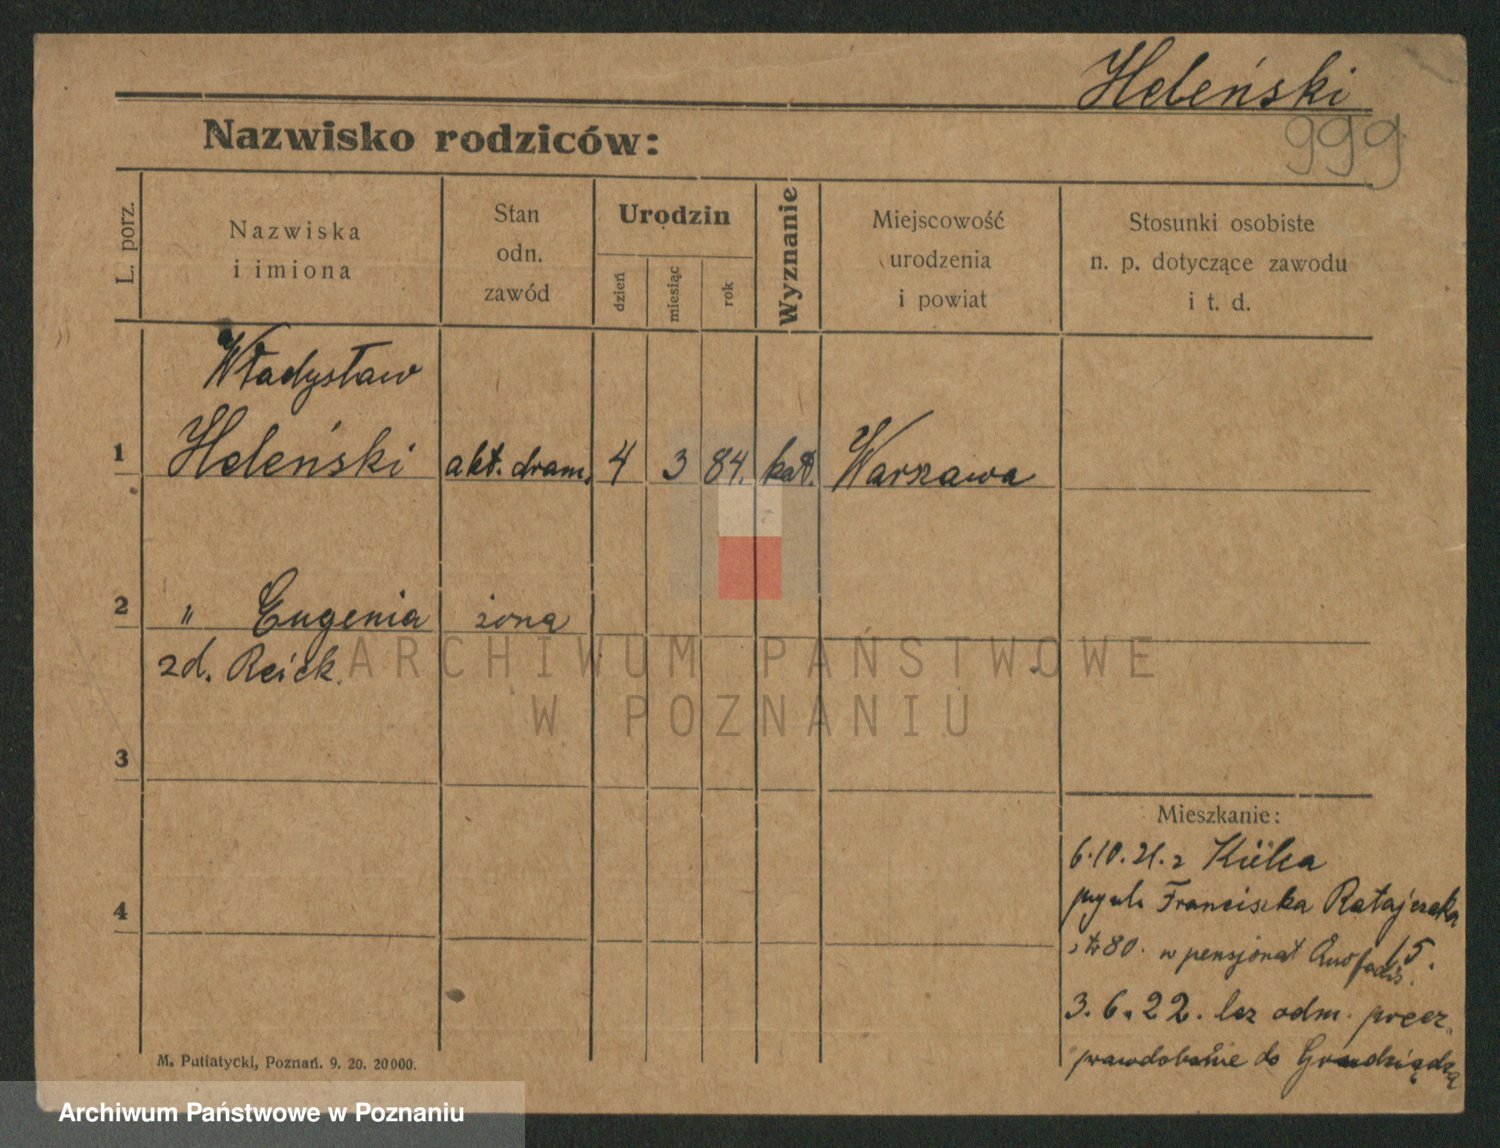 Heleński
999
Nazwisko rodziców:
L. porz.
Nazwiska
i imiona
Stan
odn.
zawód
Urodzin
dzień
miesiąc
rok
Wyznanie
Miejscowość
urodzenia
i powiat
Stosunki osobiste
n. p. dotyczące zawodu
i t. d.
Władysław
1 Heleński akt. dram. 4 3 84. kat. Warszawa
2 " Eugenia żona
zd. Reick.
ARCHIWUM PAŃSTWOWE
W POZNANIU
3
Mieszkanie:
6.10.21. z
Franciszka Ratajczaka
4
15.
80. w pensjonat
3.6.22. bez odm. precz.
prawdobnie do Grudziądza
M. Putiatycki, Poznań. 9. 20. 20000.
Archiwum Państwowe w Poznaniu